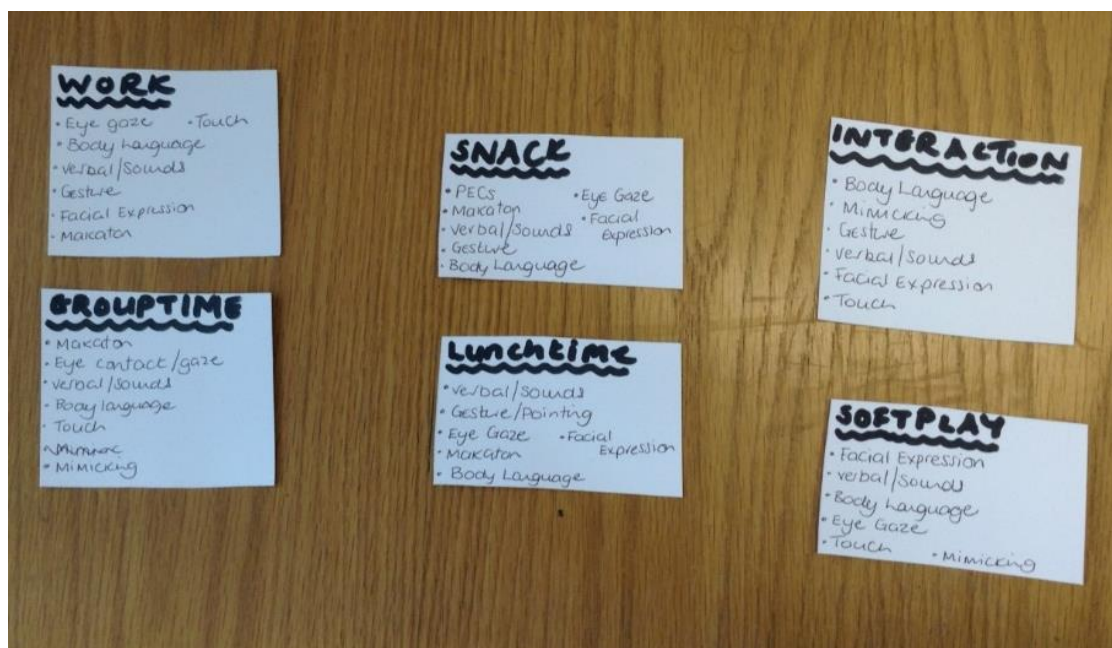 WORK
• Eye gaze • Touch
• Body Language
• verbal/Sounds
• Gesture
• Facial Expression
• Makaton
GROUPTIME
• Makaton
• Eye contact/gaze
• verbal/sounds
• Body language
• Touch
• Mimicking
SNACK
• PECs • Eye Gaze
• Makaton • Facial
• verbal/Sounds Expression
• Gesture
• Body Language
Lunchtime
• verbal/Sounds
• Gesture/Pointing
• Eye Gaze • Facial
• Makaton Expression
• Body Language
INTERACTION
• Body Language
• Mimicking
• Gesture
• verbal/Sounds
• Facial Expression
• Touch
SOFTPLAY
• Facial Expression
• verbal/Sounds
• Body Language
• Eye Gaze
• Touch • Mimicking